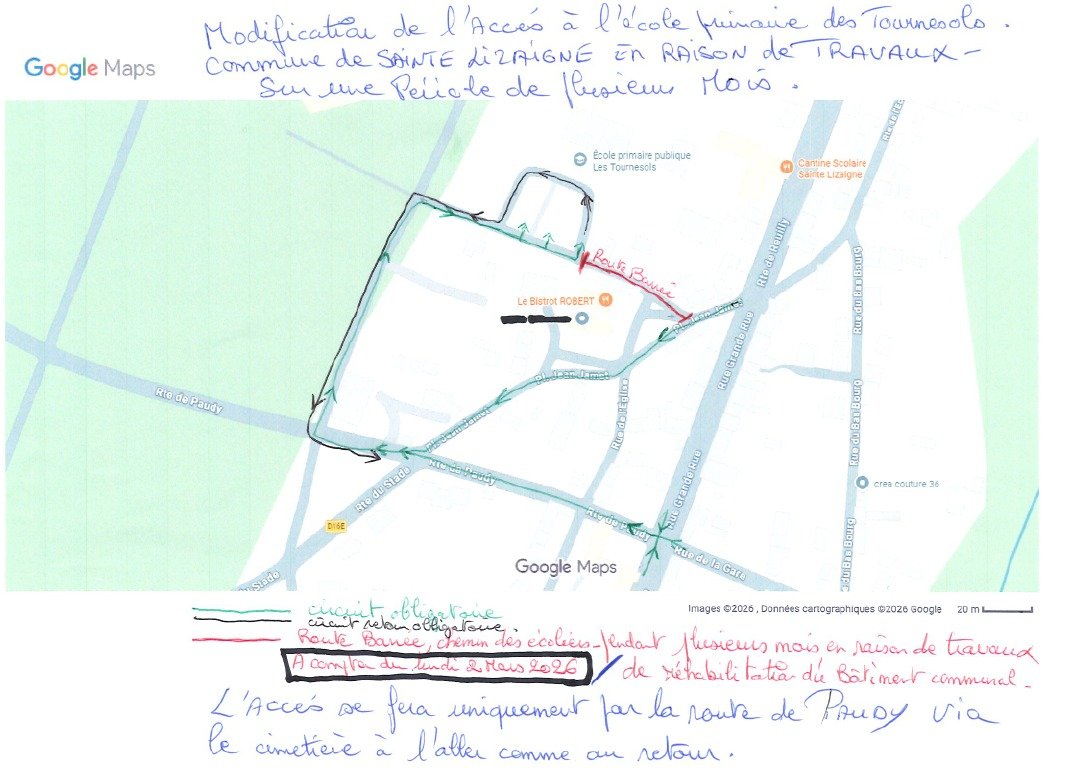 Modification de l'Accés à l'école primaire des Tournesols.
Commune de SAINTE LIZAIGNE EN RAISON de TRAVAUX -
Sur une Période de plusieurs Mois.
Google Maps
École primaire publique
Les Tournesols
Cantine Scolaire
Sainte Lizaigne
Rte de Reuilly
Route Barrée
Le Bistrot ROBERT
Pl. Jean Jamet
Rue du Bas Bourg
Rue Grande Rue
Pl. Jean Jamet
Rte de Paudy
Rue de l'Église
Pl. Jean Jamet
Rue du Bas Bourg
Rte de Paudy
Rte du Stade
Rue Grande Rue
crea couture 36
D16E
Rte de Paudy
Rue de la Gare
Rue du Bas Bourg
Google Maps
du Stade
Images ©2026 , Données cartographiques ©2026 Google 20 m
circuit obligatoire
circuit retour obligatoire.
Route Barrée, chemin des écoliers pendant plusieurs mois en raison de travaux
A compter du lundi 2 Mars 2026 / de réhabilitation du Bâtiment communal.
L'Accés se fera uniquement par la route de PAUDY via
le cimetière à l'aller comme au retour.